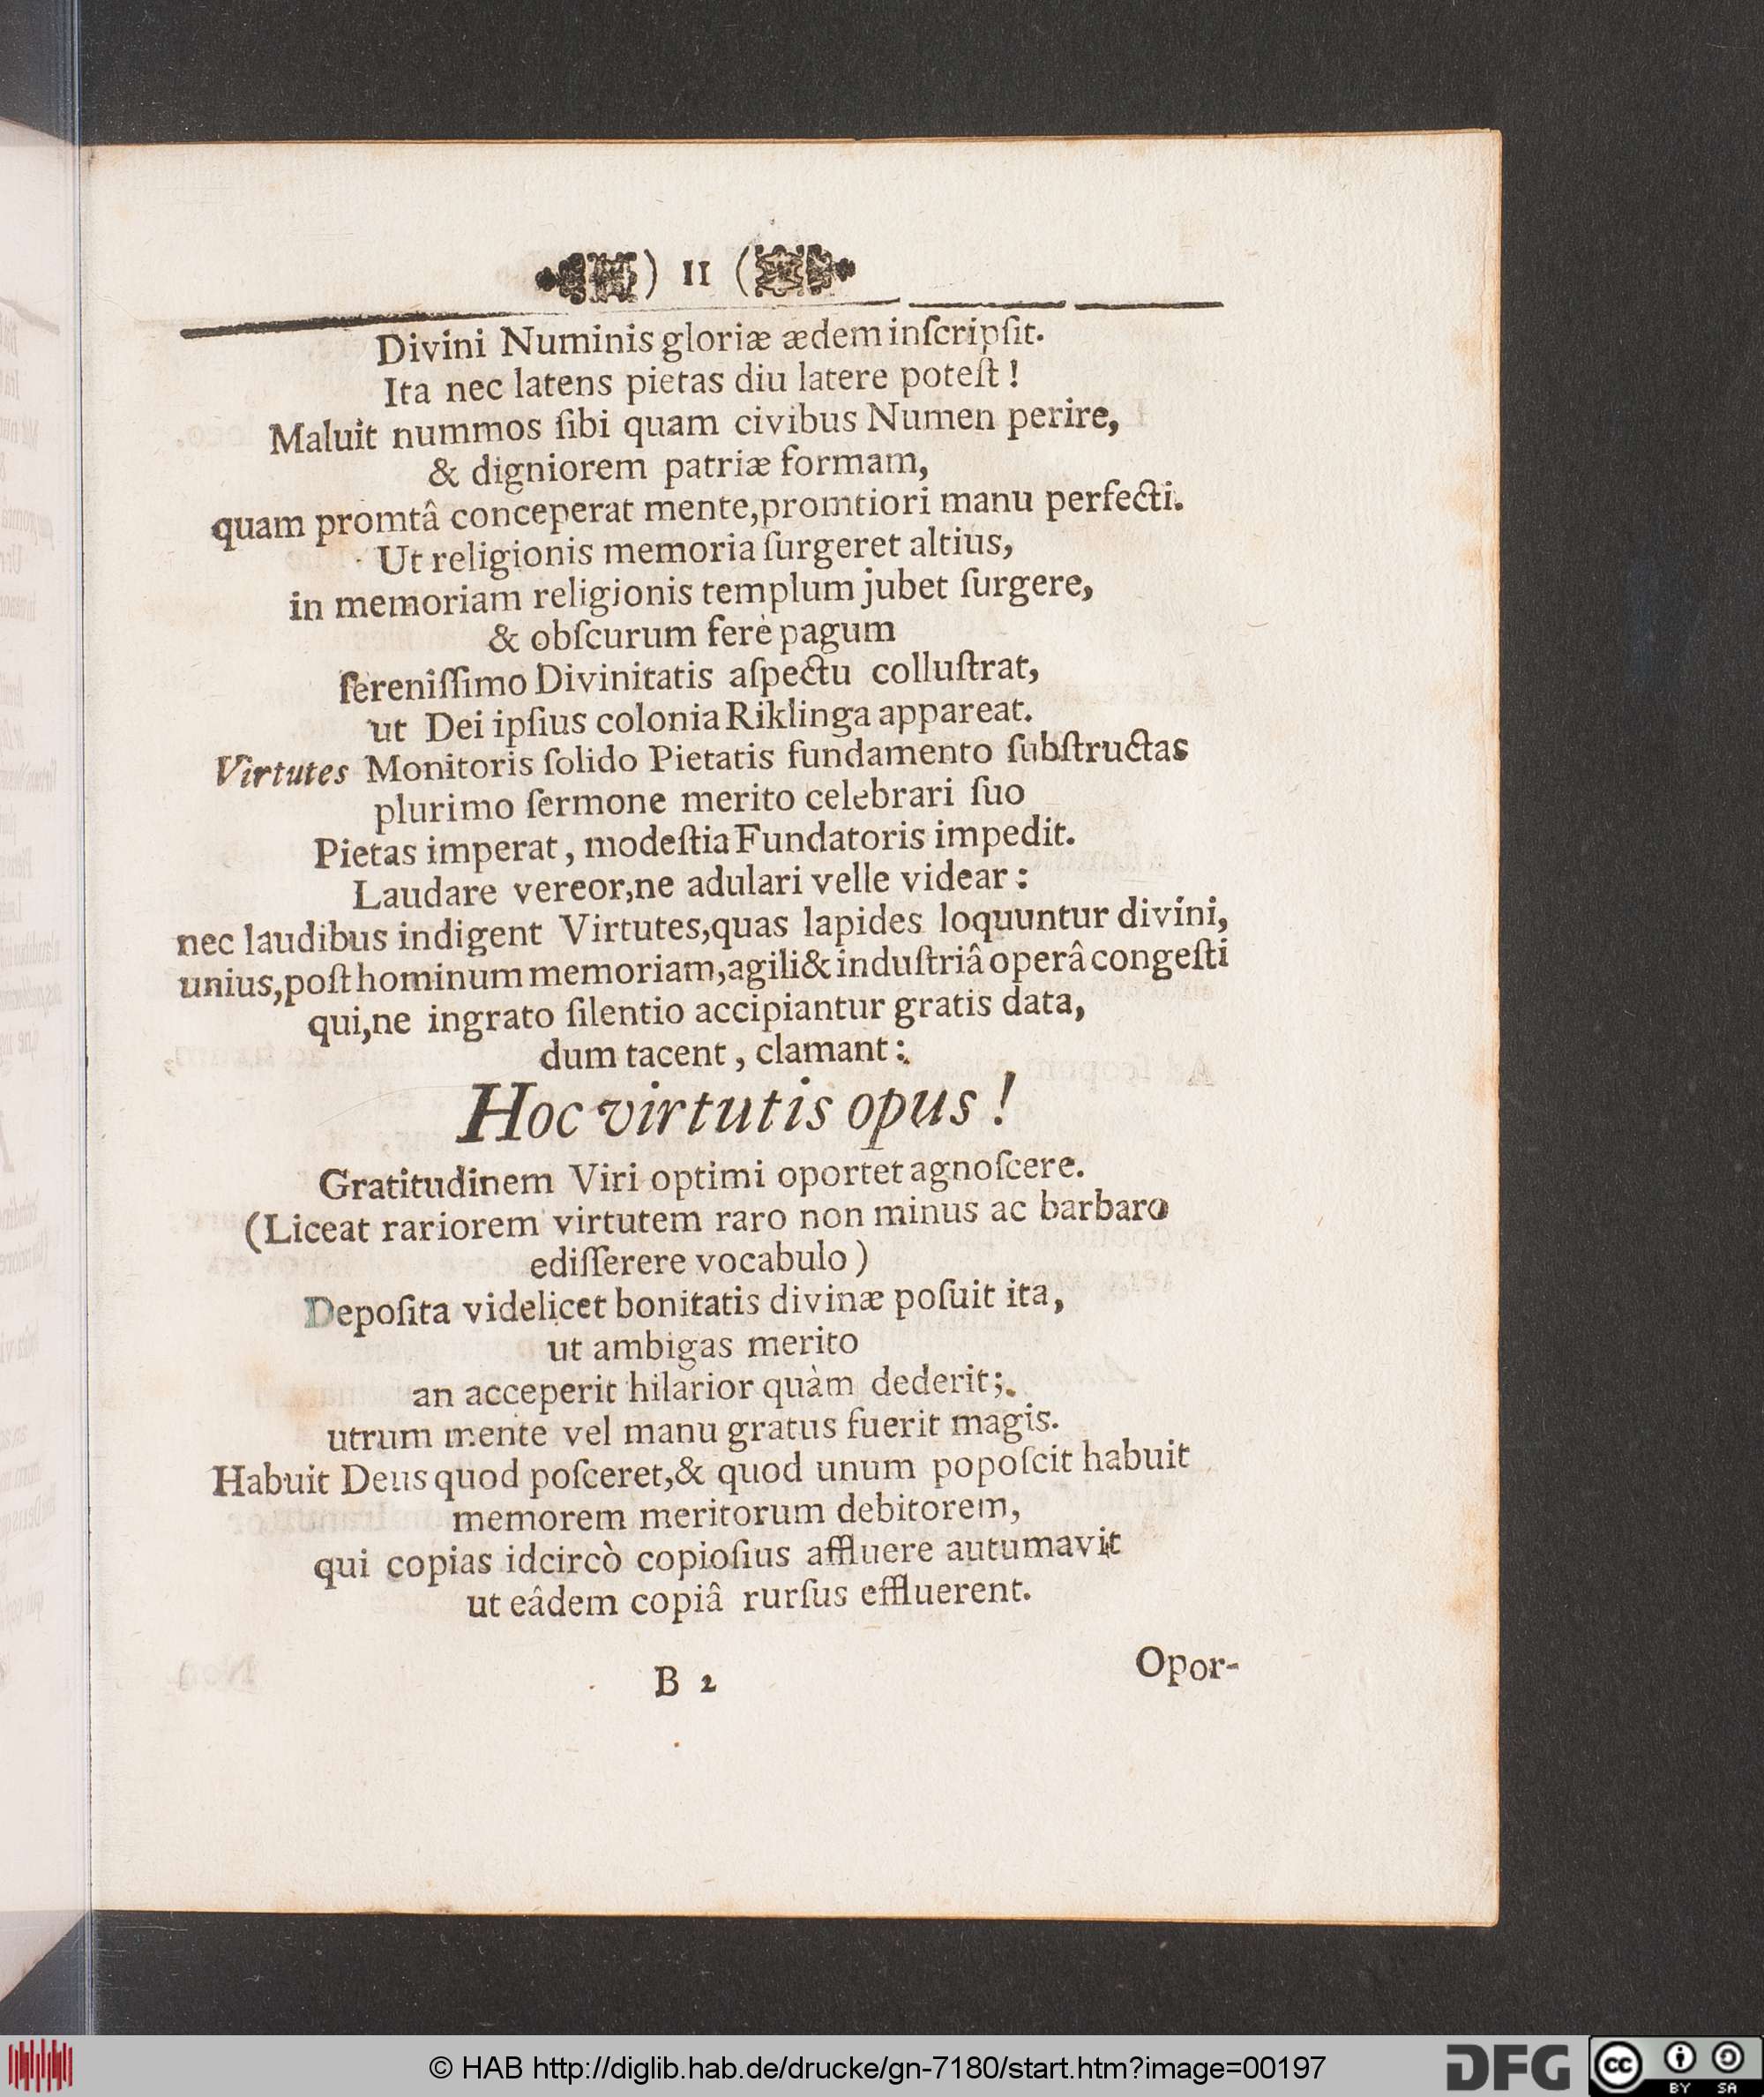 ) 11 (
Divini Numinis gloriæ ædem inſcripſit.
Ita nec latens pietas diu latere poteſt !
Maluit nummos ſibi quam civibus Numen perire,
& digniorem patriæ formam,
quam promtâ conceperat mente,promtiori manu perfecti.
Ut religionis memoria ſurgeret altius,
in memoriam religionis templum jubet ſurgere,
& obſcurum ferè pagum
ſereniſſimo Divinitatis aſpectu colluſtrat,
ut Dei ipſius colonia Riklinga appareat.
Virtutes Monitoris ſolido Pietatis fundamento ſubſtructas
plurimo ſermone merito celebrari ſuo
Pietas imperat, modeſtia Fundatoris impedit.
Laudare vereor,ne adulari velle videar :
nec laudibus indigent Virtutes,quas lapides loquuntur divini,
unius,poſt hominum memoriam,agili& induſtriâ operâ congeſti
qui,ne ingrato ſilentio accipiantur gratis data,
dum tacent, clamant :
Hoc virtutis opus !
Gratitudinem Viri optimi oportet agnoſcere.
(Liceat rariorem virtutem raro non minus ac barbaro
ediſſerere vocabulo )
Depoſita videlicet bonitatis divinæ poſuit ita,
ut ambigas merito
an acceperit hilarior quàm dederit;
utrum mente vel manu gratus fuerit magis.
Habuit Deus quod poſceret,& quod unum popoſcit habuit
memorem meritorum debitorem,
qui copias idcircò copioſius affluere autumavit
ut eâdem copiâ rurſus effluerent.
B 2
Opor-
© HAB http://diglib.hab.de/drucke/gn-7180/start.htm?image=00197
DFG
cc BY SA